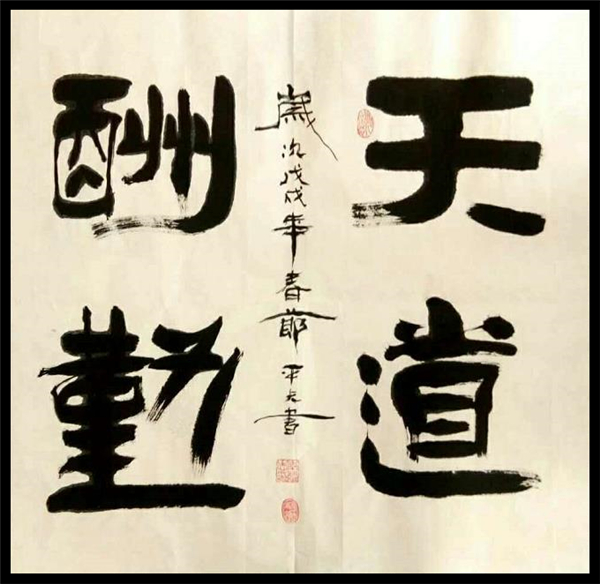 天道
酬勤
歲次戊戌年春節 平 書